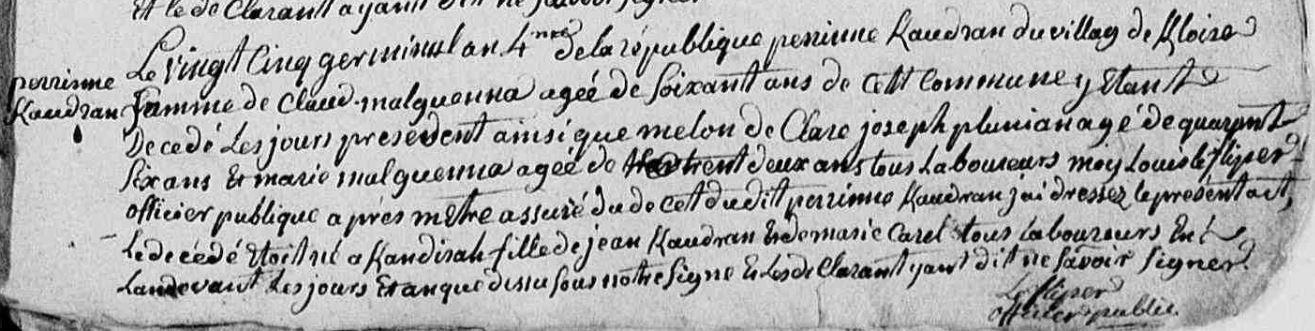 Et le de Clarant ayant dit ne savoir signer
Le vingt Cinq germinal an 4me de la république perinne Kaudran du villag de Kloire
perrinne
Kaudran
famme de Claud malguenna ageé de soixant ans de Cett Commune y Etant
Decedé Les jours presedent ainsi que melon de Claré joseph plunian agé de quarant
six ans Et marie malguenna ageé de trent deux ans tous Laboureurs moy Louis le fliper
officier publique apres metre assuré du de cet dudit perrinne Kaudran jai dressez le present act,
Le decédé Etoit né a Kandirah fille de jean Kaudran Et de marie Carel tous Laboureurs En
Landevant Les jours Et an que dessu sous notre signe Et Les de Clarant yant dit ne savoir signer.
Le fliper
officier public.